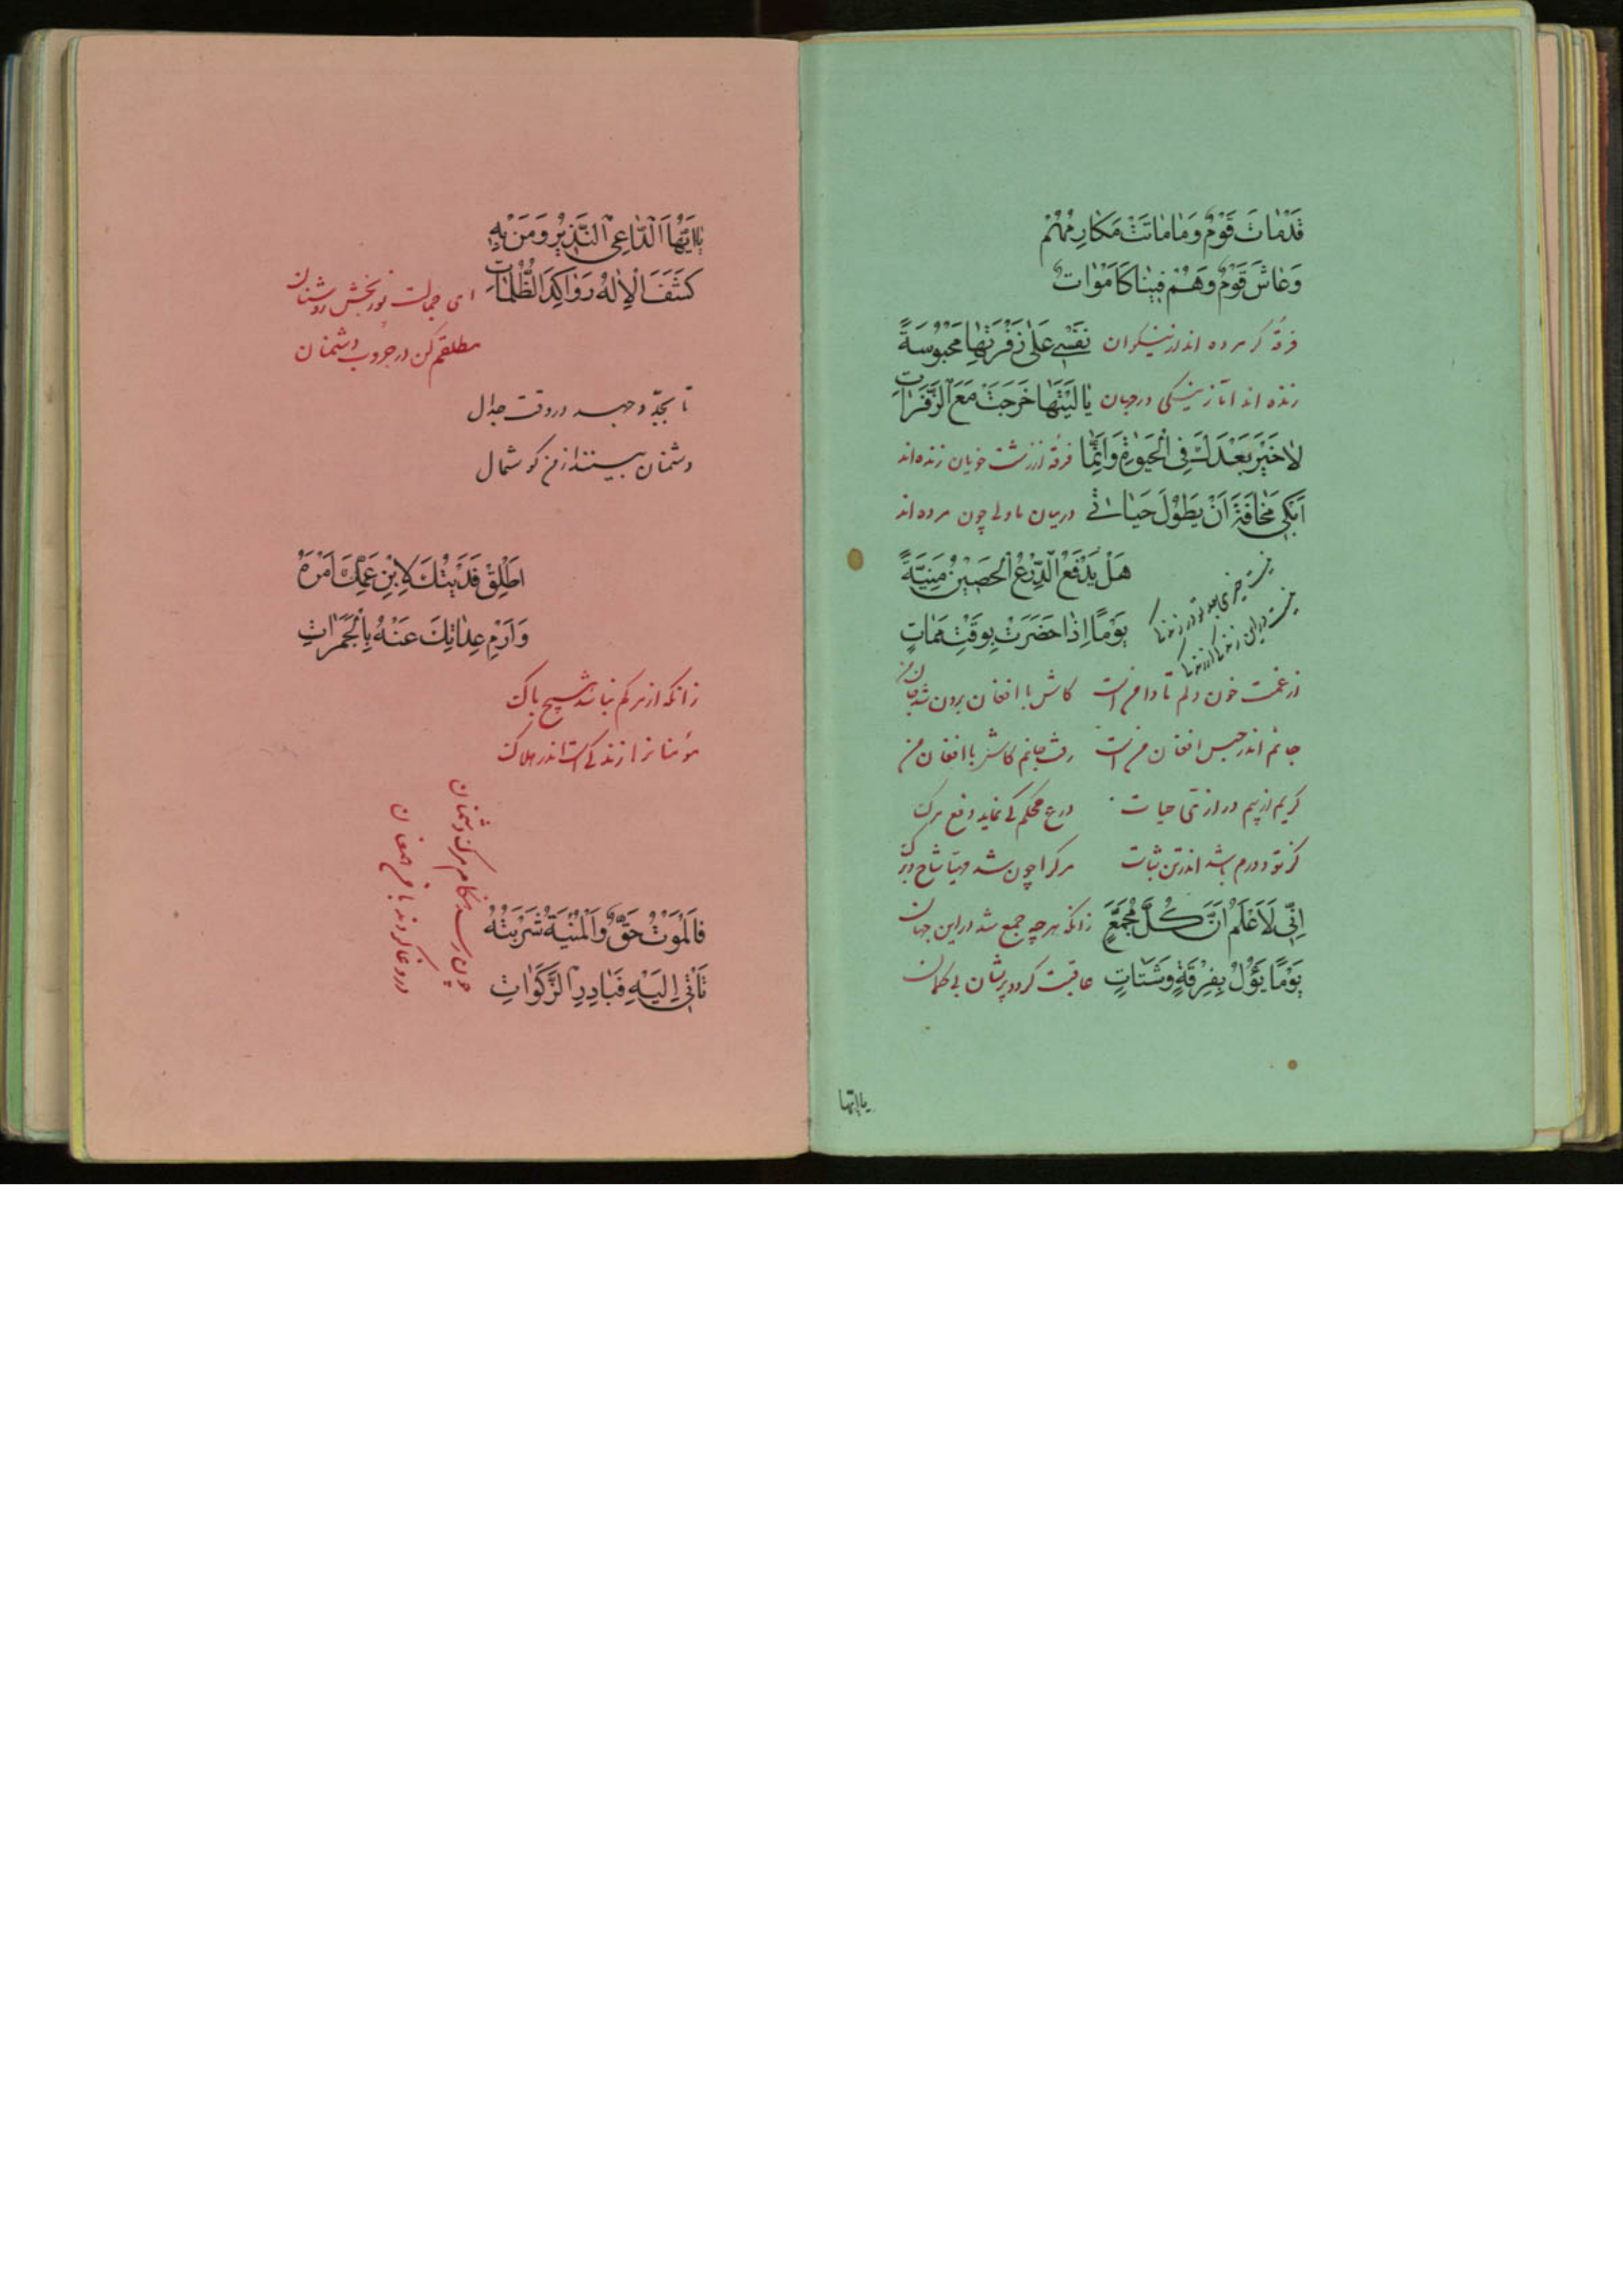 قَدْمَاتَ قَوْمٌ وَمَا مَاتَتْ مَكَارِمُهُمْ
وَعَاشَ قَوْمٌ وَهُمْ فِينَا كَامْوَاتٌ
فرقهٔ کر مرده اند از نیکوان نَفْسِي عَلىٰ زَفَرَتِهَا مَحْبُوسَةٌ
زنده اند آثار نیکی در جهان يَا لَيْتَهَا خَرَجَتْ مَعَ الزَّفَرَاتِ
لَا خَيْرَ بَعْدَكَ فِي الْحَيٰوةِ وَاِنَّمَا فرقهٔ از زشت خویان زنده‌اند
اَبْكِي مَخَافَةَ اَنْ يَطُوْلَ حَيَاتِي در میان ما ولی چون مرده‌اند
هَلْ يَدْفَعُ الدِّرْعُ الْحَصِيْنُ مَنِيَّةً
يَوْمًا اِذَا حَضَرَتْ بِوَقْتِ مَمَاتٍ
نیست خیری بعد تو در زندگی
از غمت خون دلم تا دامن است کاش با افغان برون شد جان من
جانم اندر حبس افغان من است رفت جانم کاش با افغان من
گریم از بیم درازی حیات درع محکم کی نماید دفع مرگ
کز تو دورم باشد اندر تن ثبات مرگ را چون شد مهیا شاخ و برگ
اِنِّي لَاَعْلَمُ اَنَّ كُلَّ مُجَمَّعٍ زانکه هر چه جمع شد در این جهان
يَوْمًا يَؤُلُ بِفِرْقَةٍ وَشَتَاتٍ عاقبت گردد پریشان بی گمان
یا ایها
يَا اَيُّهَا الدَّاعِي النَّذِيْرُ وَمَنْ بِهِ
كَشَفَ الْاِلٰهُ رَوَاكِدَ الظُّلُمَاتِ ای جمالت نوربخش روشنان
مطلقم کن در حروب دشمنان
تا بجدّ و جهد در وقت جدال
دشمنان بینند از من گوشمال
اَطْلِقْ فَدَيْتُكَ لِابْنِ عَمِّكَ اَمْرَهُ
وَارْمِ عِدَاتِكَ عَنْهُ بِالْجَمَرَاتِ
زانکه از مرگم نباشد هیچ باک
مؤمنانرا زندگی است اندر هلاک
چون رسد هنگام مرگ دشمنان
در وغا گردند با من همعنان
فَالْمَوْتُ حَقٌّ وَالْمَنِيَّةُ شَرْبَتُهُ
تَأْتِي اِلَيْهِ فَبَادِرِ الزَّكَوَاتِ